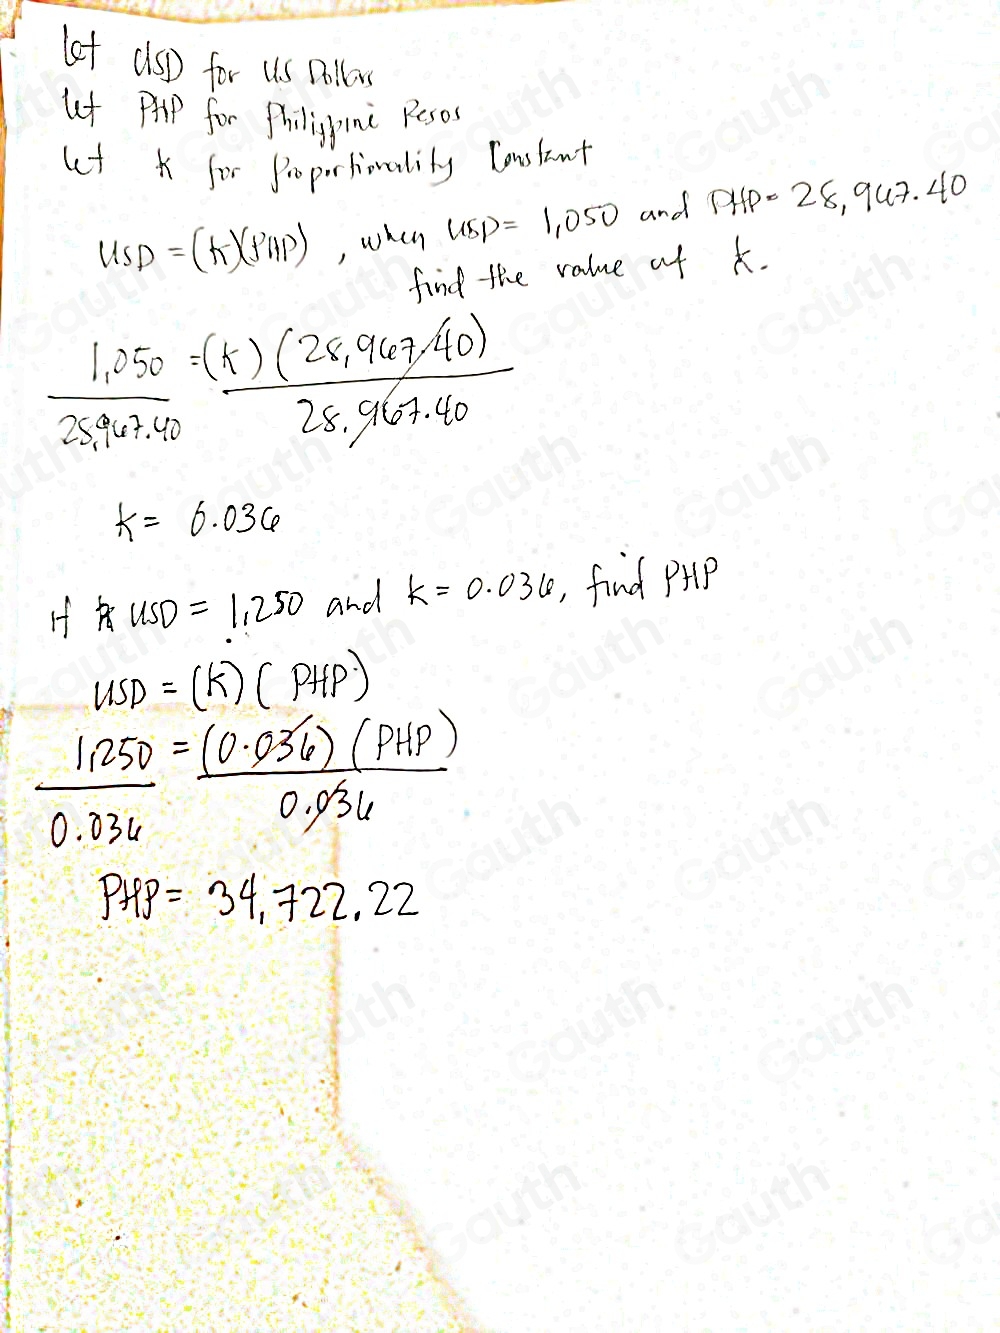 let USD for US Dollars
let PHP for Philippine Pesos
let k for Proportionality Constant
USD = (k)(PHP), when USD = 1,050 and PHP = 28,967.40
find the value of k.
1,050 = (k) (28,967.40)
28,967.40 28,967.40
k = 0.036
If USD = 1,250 and k = 0.036, find PHP
USD = (k) ( PHP )
1,250 = (0.036) (PHP)
0.036 0.036
PHP = 34,722.22